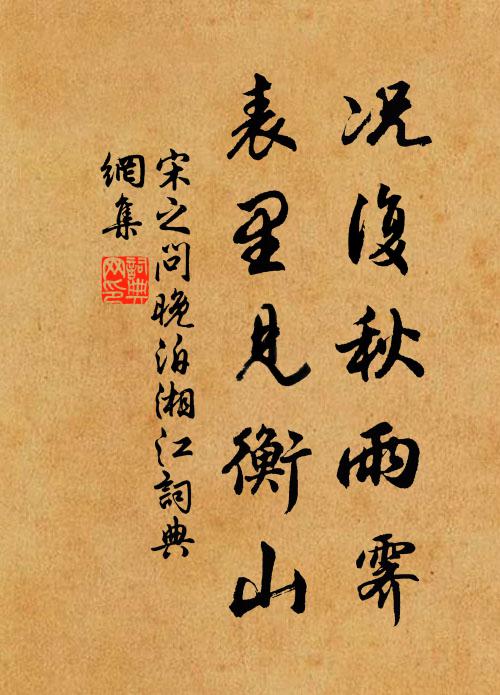 况復秋雨霽
表里見衡山
宋之問晚泊湘江詞典
網集
詞典
网印